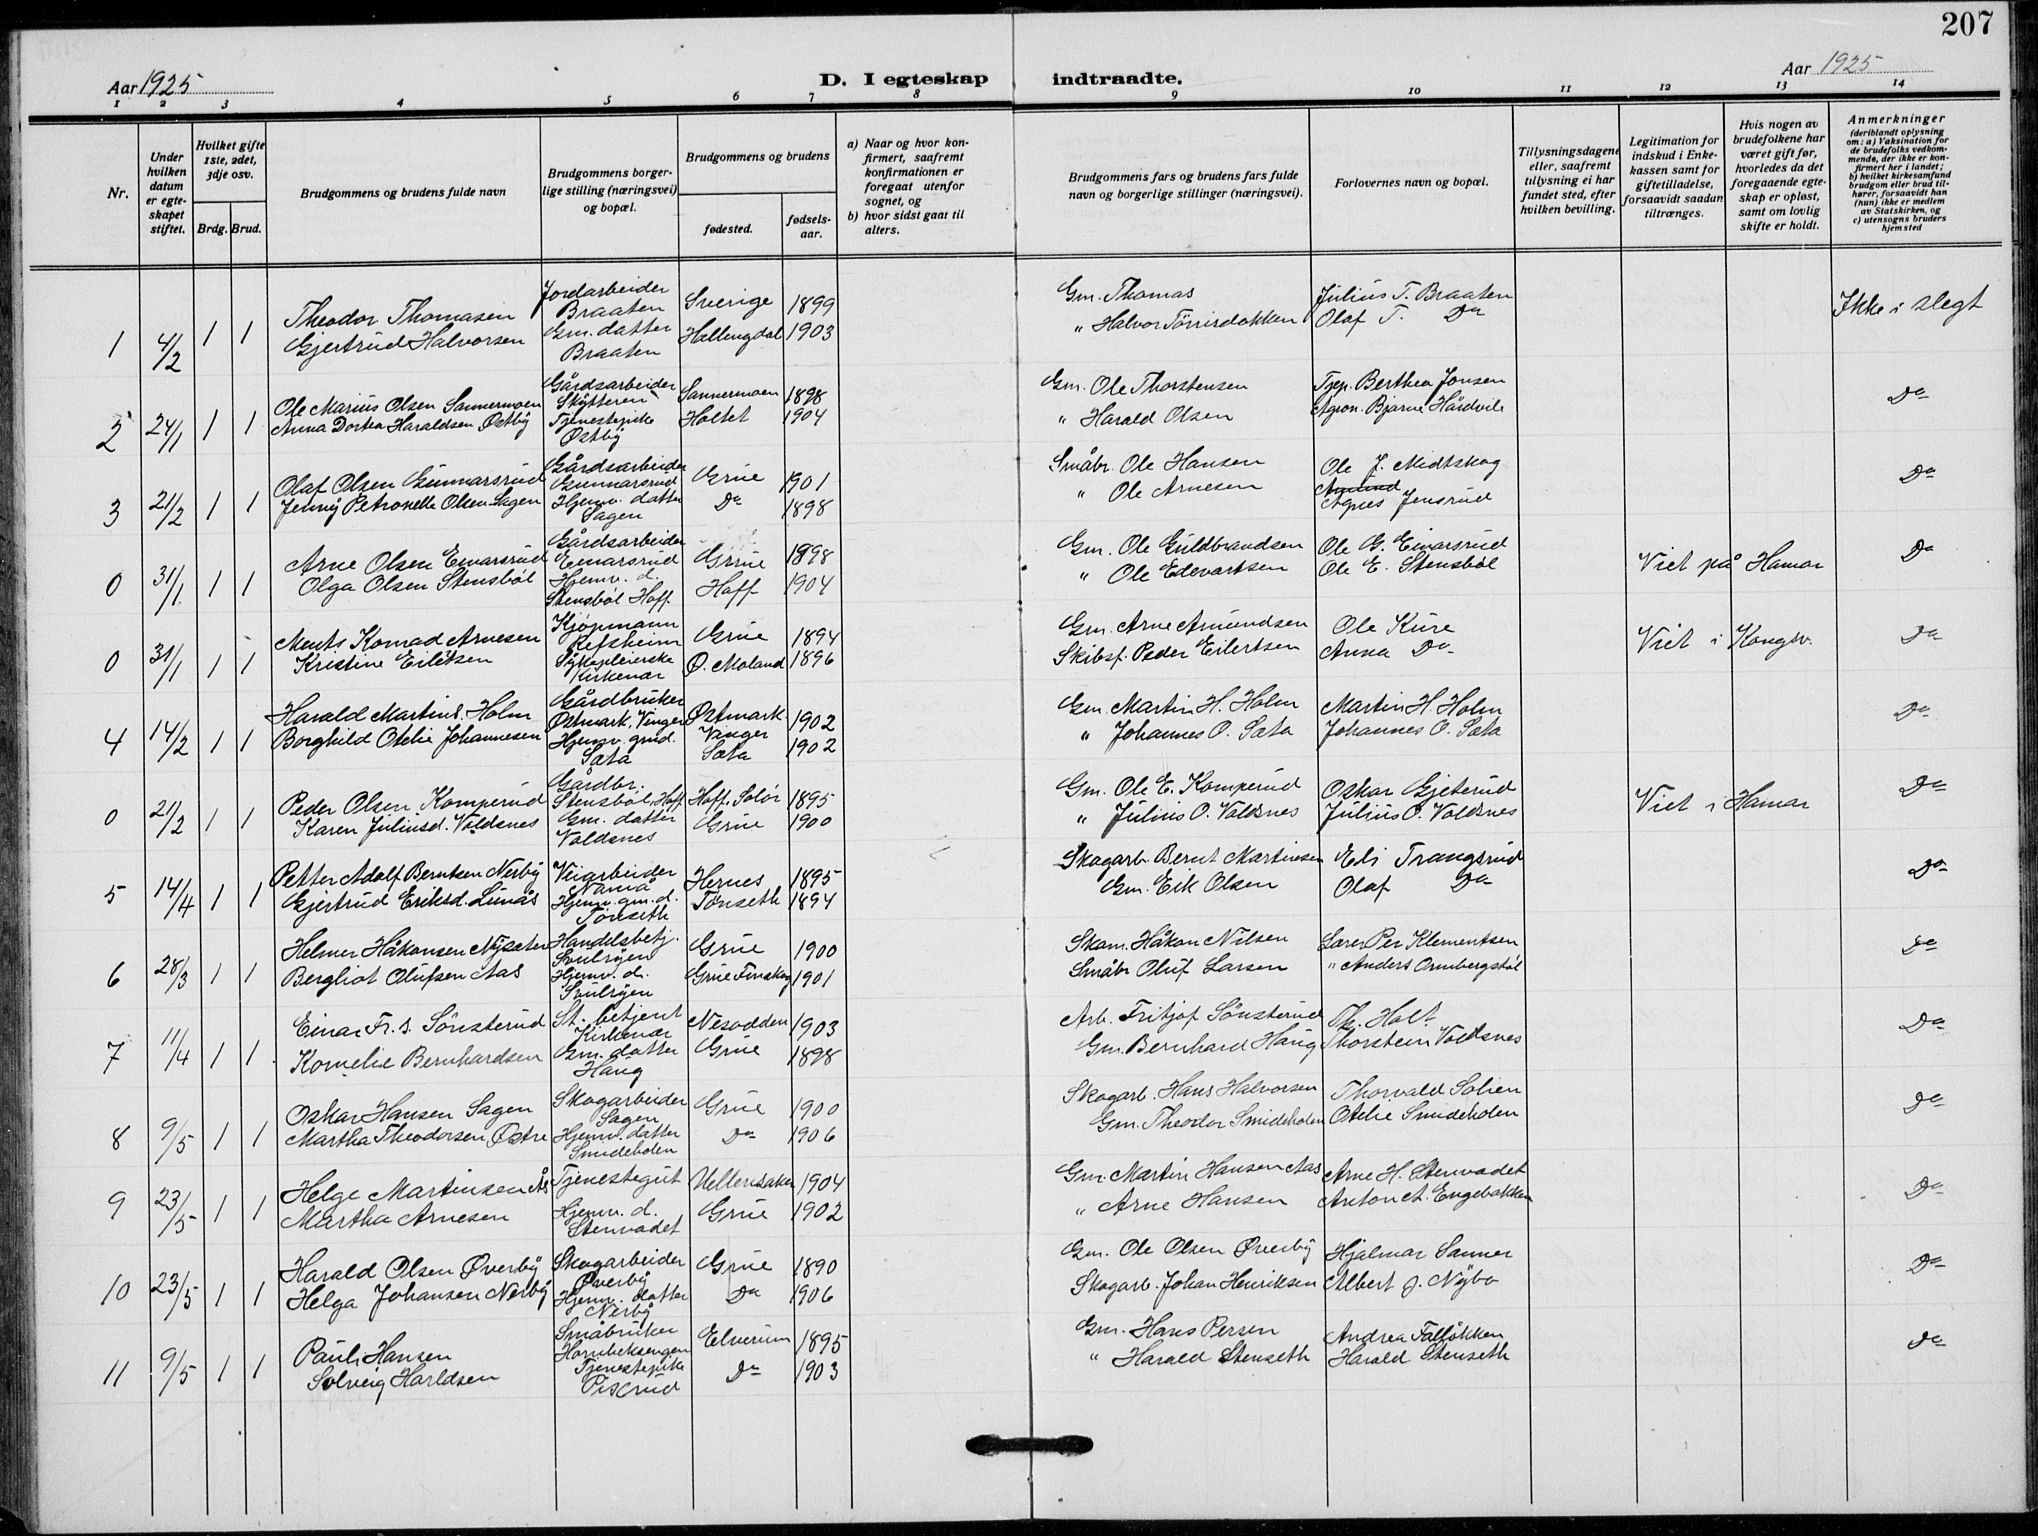 207
Aar 1925
D. I egteskap indtraadte.
Aar 1925
1 2 3 4 5 6 7 8 9 10 11 12 13 14
Nr.
Under hvilken datum er egteskapet stiftet.
Hvilket gifte 1ste, 2det, 3dje osv.
Brdg. Brud.
Brudgommens og brudens fulde navn
Brudgommens borgerlige stilling (næringsvei) og bopæl.
Brudgommens og brudens
fødested.
fødselsaar.
a) Naar og hvor konfirmert, saafremt konfirmationen er foregaat utenfor sognet, og
b) hvor sidst gaat til alters.
Brudgommens fars og brudens fars fulde navn og borgerlige stillinger (næringsvei).
Forlovernes navn og bopæl.
Tillysningsdagene eller, saafremt tillysning ei har fundet sted, efter hvilken bevilling.
Legitimation for indskud i Enkekassen samt for giftetilladelse, forsaavidt saadan tiltrænges.
Hvis nogen av brudefolkene har været gift før, hvorledes da det foregaaende egteskap er opløst, samt om lovlig skifte er holdt.
Anmerkninger
(deriblandt oplysning om: a) Vaksination for de brudefolks vedkommende, der ikke er konfirmert her i landet; b) hvilket kirkesamfund brudgom eller brud tilhører, forsaavidt han (hun) ikke er medlem av Statskirken, og c) utensogns bruders hjemsted
1 4/2 1 1 Theodor Thomasen Jordarbeider Braaten Sverige 1899 Gm. Thomas Julius T. Braaten Ikke i slegt
Gjertrud Halvorsen Gm. datter Braaten Hallingdal 1903 " Halvor Tørrisdokken Olaf T. Do
2 24/1 1 1 Ole Marius Olsen Sannermoen Gårdsarbeider Skytteren Sannermoen 1898 Gm. Ole Thorstensen Tjep. Berthea Jonsen Do
Anna Dortea Haraldsen Østby Tjenestepike Østby Holtet 1904 " Harald Olsen Agron. Bjarne Hårdvik
3 21/2 1 1 Olaf Olsen Gunnarsrud Gårdsarbeider Gunnarsrud Grue 1901 Småbr. Ole Hansen Ole J. Midtskog Do
Jenny Petronelle Olsen Sagen Hjemv. datter Sagen Do 1898 " Ole Arnesen Agnes Jensrud
0 31/1 1 1 Arne Olsen Einarsrud Gårdsarbeider Einarsrud Grue 1898 Gm. Ole Guldbrandsen Ole G. Einarsrud Viet på Hamar Do
Olga Olsen Stensbøl Hjemv. d. Stensbøl Hoff Hoff 1904 " Ole Edevartsen Ole E. Stensbøl
0 31/1 1 1 Ments Konrad Arnesen Kjøpmann Refsheim Grue 1894 Gm. Arne Amundsen Ole Kure Viet i Kongsv. Do
Kristine Eilertsen Sykepleierske Kirkenær Ø. Moland 1896 Skibsf. Peder Eilertsen Anna Do
4 14/2 1 1 Harald Martins. Holm Gårdbruker Østmark, Vinger Østmark Vinger 1902 Gm. Martin H. Holm Martin H. Holm Do
Borghild Otelie Johannesen Hjemv. gmd. Sæta Sæta 1902 " Johannes O. Sæta Johannes O. Sæta
0 21/2 1 1 Peder Olsen Komperud Gårdbr. Stensbøl, Hoff Hoff, Solør 1895 Gm. Ole E. Komperud Oskar Gjeterud Viet i Hamar Do
Karen Juliusd. Voldsnes Gm. datter Voldsnes Grue 1900 " Julius O. Voldsnes Julius O. Voldsnes
5 14/4 1 1 Petter Adolf Berntsen Nerby Veiarbeider Namnå Hernes 1895 Skogarb. Bernt Martinsen Eli Trangsrud Do
Gjertrud Eriksd. Lunås Hjemv. gm. d. Tønseth Tønseth 1894 Gm. Erik Olsen Olaf Do
6 28/3 1 1 Helmer Håkonsen Nysæter Handelsbetj. Svulryen Grue 1900 Skom. Håkon Nilsen Lærer Per Klementsen Do
Bergliot Olufsen Aas Hjemv. d. Svulryen Grue Finskog 1901 Småbr Oluf Larsen " Anders Ornbergstøl
7 11/4 1 1 Einar Fr. s. Sönsterud St. betjent Kirkenær Nesodden 1903 Arb. Fritjof Sönsterud Th. Holt Do
Kornelie Bernhardsen Gm. datter Haug Grue 1898 Gm. Bernhard Haug Thorstein Voldsnes
8 9/5 1 1 Oskar Hansen Sagen Skogarbeider Sagen Grue 1900 Skogarb. Hans Halvorsen Thorvald Solien Do
Martha Theodorsen Østre Hjemv. datter Smideholen Do 1906 Gm. Theodor Smideholen Otelie Smideholen
9 23/5 1 1 Helge Martinsen Ås Tjenestegut Ullensaker 1904 Gm. Martin Hansen Aas Arne H. Stenvadet Do
Martha Arnesen Hjemv. d. Stenvadet Grue 1902 " Arne Hansen Anton A. Engebakken
10 23/5 1 1 Harald Olsen Øverby Skogarbeider Øverby Grue 1890 Gm. Ole Olsen Øverby Hjalmar Sanner Do
Helga Johansen Nerby Hjemv. datter Nerby Do 1906 Skogarb. Johan Henriksen Albert J. Nybo
11 9/5 1 1 Paul Hansen Småbruker Hornbeksengen Elverum 1895 Gm. Hans Persen Andrea Talløkken Do
Solveig Harldsen Tjenestepike Pisrud Do 1903 " Harald Stenseth Harald Stenseth